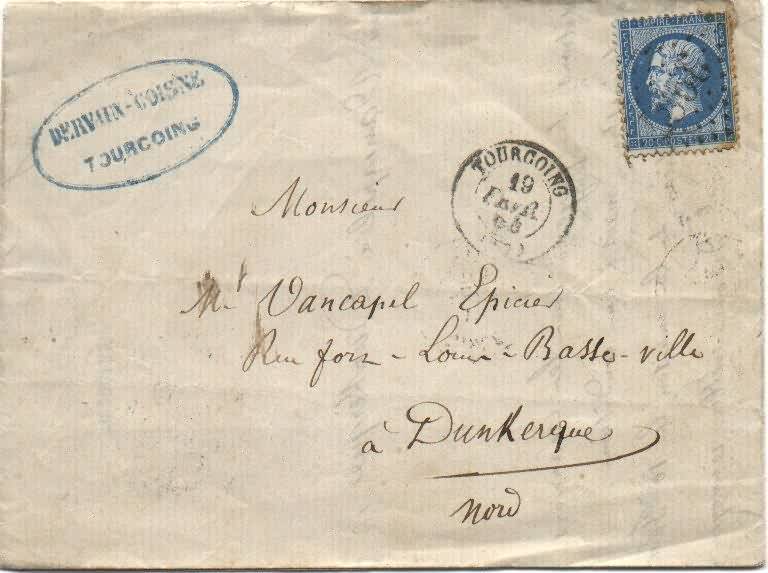 DERVAUX-COISNE
TOURCOING
EMPIRE FRANC
20 C POSTES 20 C
TOURCOING
19
FEVR
Monsieur
Mr Vancapel Epicier
Rue fort-Louis-Basse-ville
à Dunkerque
Nord